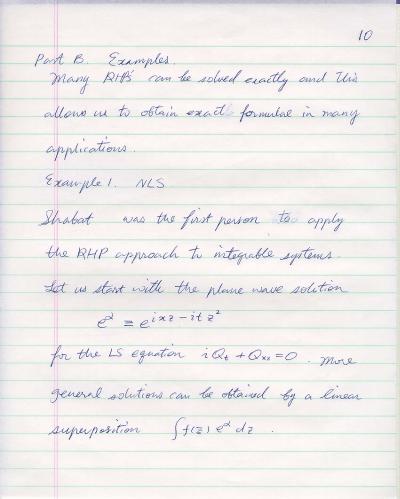 10
Part B. Examples.
Many RHB's can be solved exactly and this
allows us to obtain exact formulae in many
applications.
Example 1. NLS
Shabat was the first person to apply
the RHP approach to integrable systems.
Let us start with the plane wave solution
e^α ≡ e^{ixz - itz²}
for the LS equation iQ_t + Q_xx = 0. More
general solutions can be obtained by a linear
superposition ∫f(z) e^α dz.